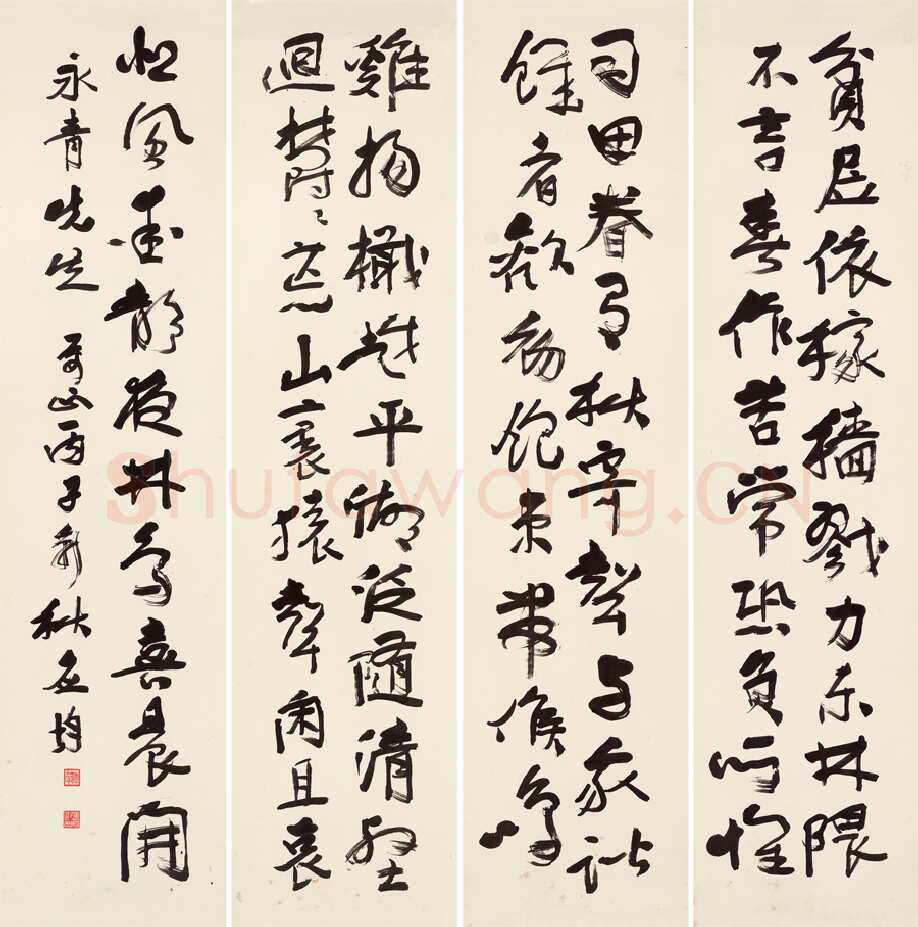 貧居依稼穡戮力東林隈
不言春作苦常恐負所懷
司田眷有秋寄聲與我諧
饑者歡初飽束帶候鳴
雞揚檝越平湖泛隨清壑
迴鬱〻荒山裏猿聲閑且哀
悲風愛靜夜林鳥喜晨開
永青先生 正 丙子新秋 均
Shufawang.CN